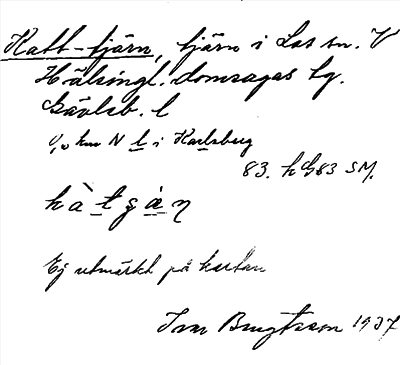 Katt-tjärn, tjärn i Los sn. V
Hälsingl. domsagas tg.
Gävleb. l
km N l i Karlsberg
83. SM.
Ej utmärkt på kartan
Ivar Bengtsson 1937